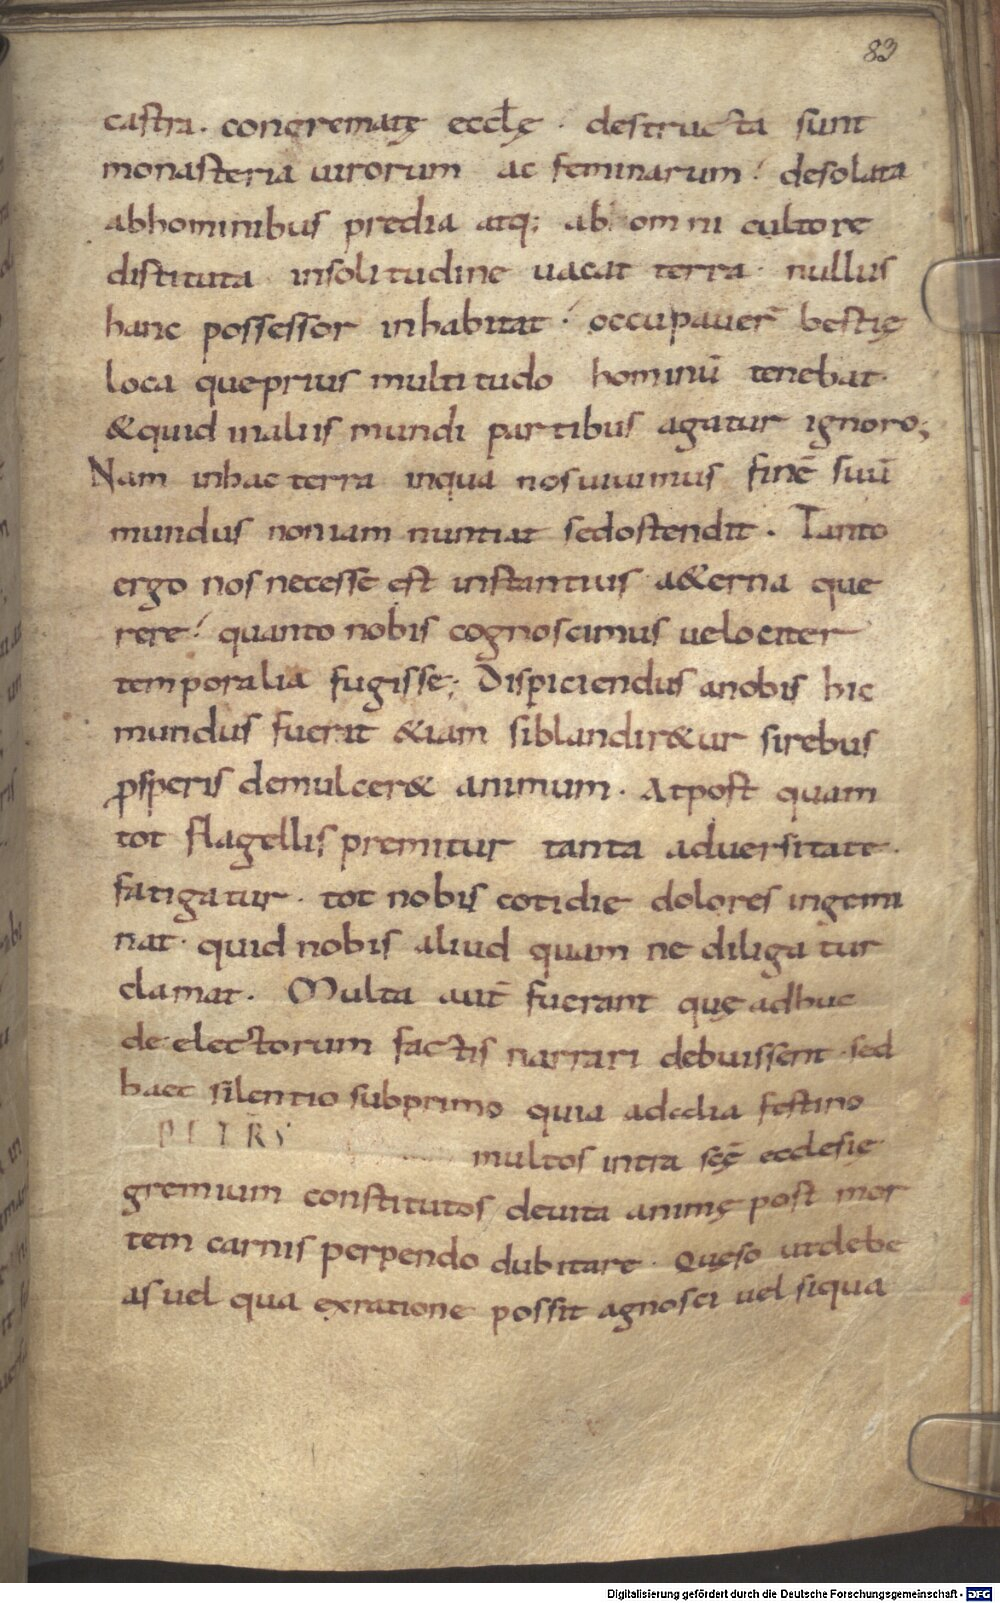 83
castra. congrematę eccłę. destructa sunt
monasteria uirorum ac feminarum. desolata
abhominibus predia atq; ab omni cultore
distituta insolitudine uacat terra. nullus
hanc possessor inhabitat. occupauer̄ bestię
loca queprius multitudo hominū tenebat.
&quid inaliis mundi partibus agatur ignoro;
Nam inhac terra inqua nosuiuimus finē suū
mundus noniam nuntiat sedostendit. Tanto
ergo nos necesse est instantius a&erna que
rere. quanto nobis cognoscimus uelociter
temporalia fugisse; Dispiciendus anobis hic
mundus fuerit &iam siblandir&ur sirebus
ꝓsperis demulcer& animum. Atpost quam
tot flagellis premitur tanta aduersitate.
fatigatur. tot nobis cotidie dolores ingemi
nat. quid nobis aliud quam ne diligatur
clamat. Multa aut̄ fuerant quę adhuc
de electorum factis narrari debuissent. sed
haec silentio subprimo quia adalia festino
PETRS
multos intra scę̄ ecclesię
gremium constitutos deuita animę post mor
tem carnis perpendo dubitare. Quęso utdebe
as uel qua exratione possit agnosci uel siqua
Digitalisierung gefördert durch die Deutsche Forschungsgemeinschaft - DFG